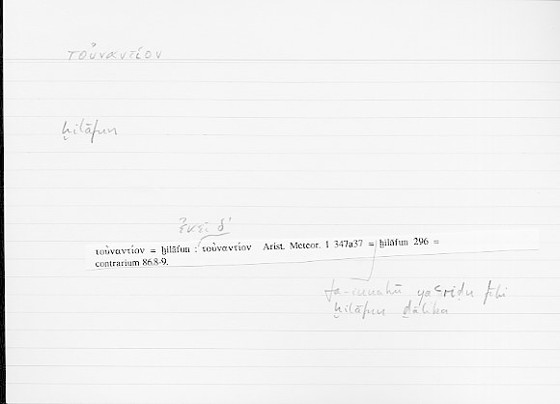 τοὐναντίον
ḫilāfun
ἐκεῖ δ'
τοὐναντίον = ḫilāfun : τοὐναντίον Arist. Meteor. I 347a37 = ḫilāfun 296 =
contrarium 868-9.
fa-innahū yaʿriḍu fīhi
ḫilāfun ḏālika